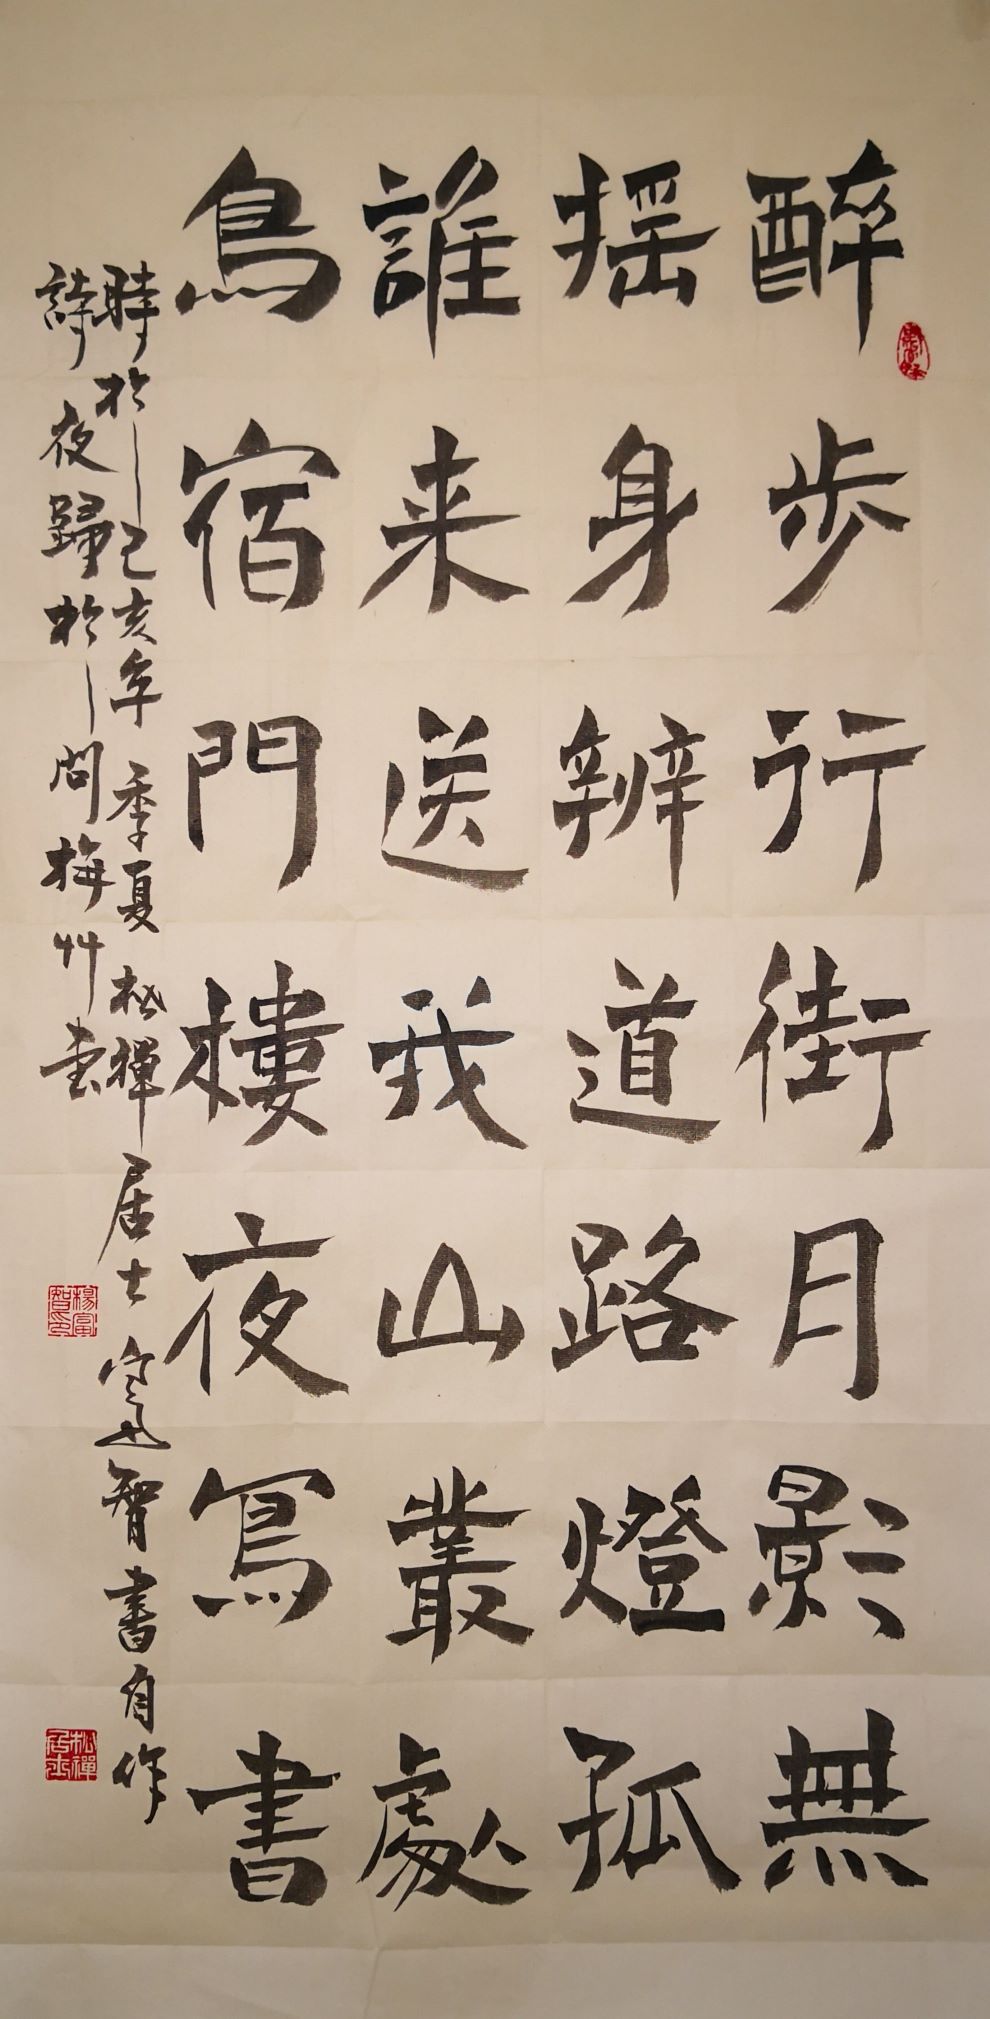 醉步行街月影無
揺身辨道路燈孤
誰来送我山叢處
鳥宿門樓夜寫書
時於己亥年季夏松禪居士富智書自作
詩夜歸於問梅草堂
楊富智印
松禪居士